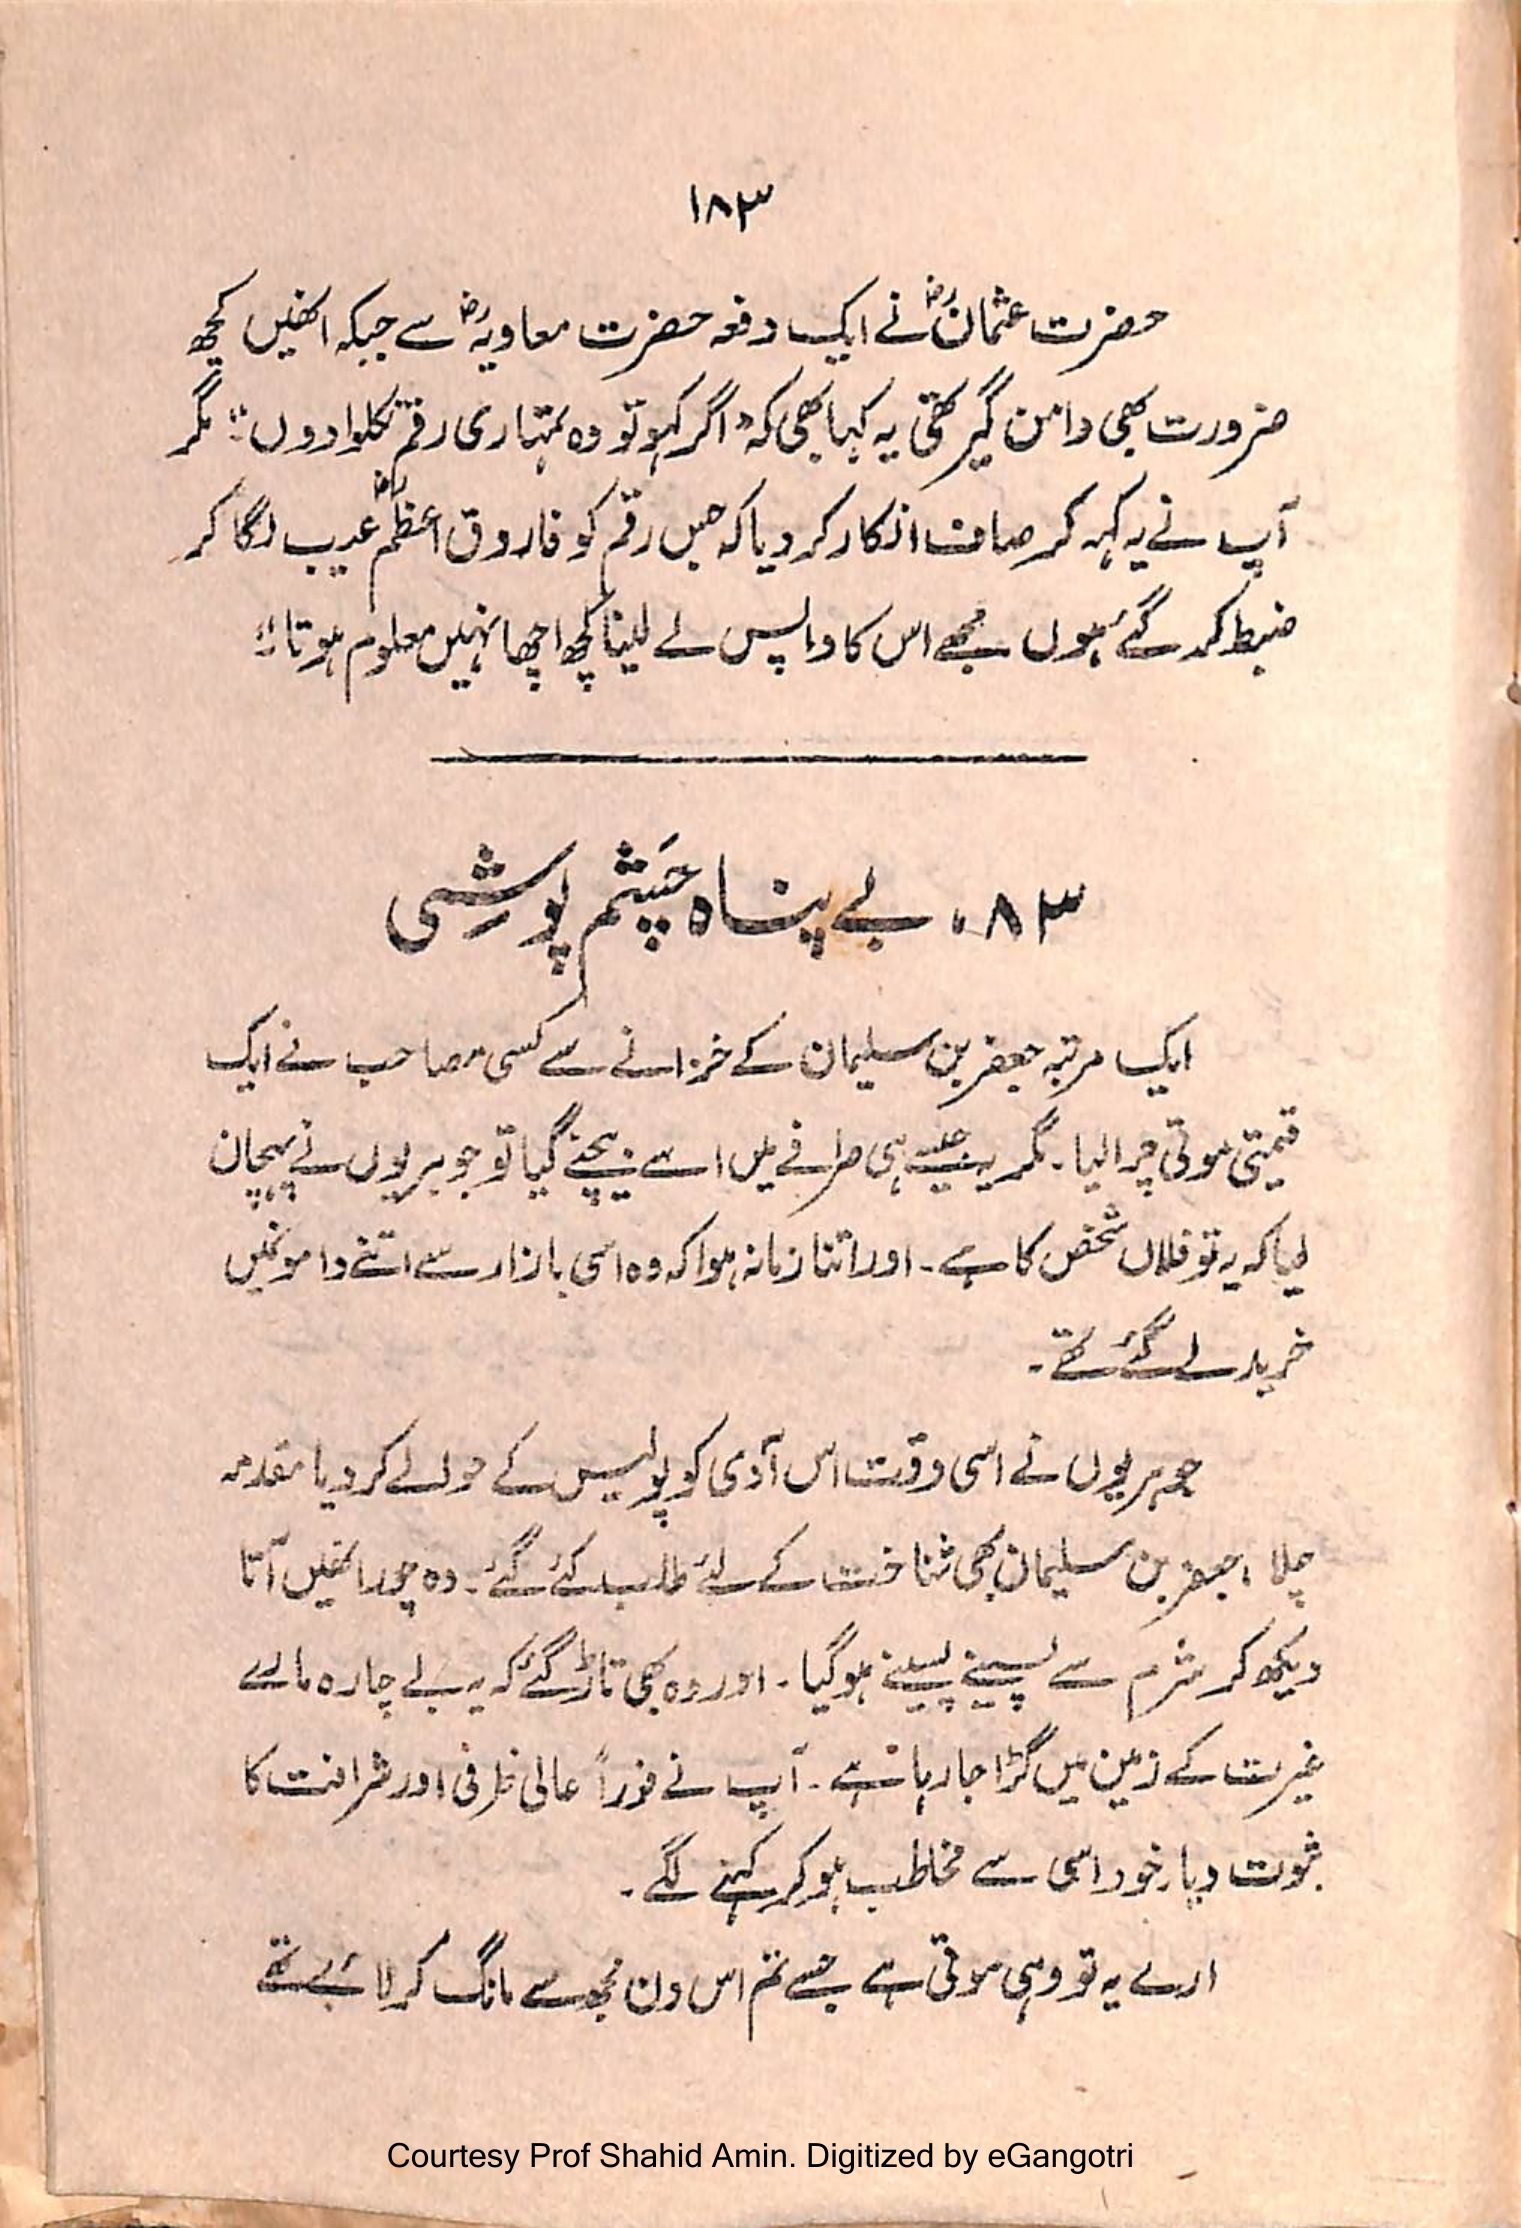 ۱۸۳
حضرت عثمانؓ نے ایک دفعہ حضرت معاویہؓ سے جبکہ انھیں کچھ
ضرورت بھی دامن گیر تھی یہ کہا بھی کہ "اگر کہو تو وہ تمہاری رقم نکلوا دوں" مگر
آپ نے یہ کہہ کر صاف انکار کر دیا کہ جس رقم کو فاروق اعظمؓ عیب لگا کر
ضبط کر گئے ہوں مجھے اس کا واپس لے لینا کچھ اچھا نہیں معلوم ہوتا"
۸۳۔ بے پناہ چَشم پوشِی
ایک مرتبہ جعفر بن سلیمان کے خزانے سے کسی مصاحب نے ایک
قیمتی موتی چرا لیا۔ مگر جیسے ہی صرافے میں اسے بیچنے گیا تو جوہریوں نے پہچان
لیا کہ یہ تو فلاں شخص کا ہے۔ اور اتنا زمانہ ہوا کہ وہ اسی بازار سے اتنے داموں میں
خرید لے گئے تھے۔
جوہریوں نے اسی وقت اس آدمی کو پولیس کے حوالے کر دیا مقدمہ
چلا، جعفر بن سلیمان بھی شناخت کے لئے طلب کئے گئے۔ وہ چور انھیں آتا
دیکھ کر شرم سے پسینے پسینے ہوگیا۔ اور وہ بھی تاڑ گئے کہ یہ بے چارہ مارے
غیرت کے زمین میں گڑا جا رہا ہے۔ آپ نے فوراً عالی ظرفی اور شرافت کا
ثبوت دیا۔ خود اسی سے مخاطب ہو کر کہنے لگے۔
ارے یہ تو وہی موتی ہے جسے تم اس دن مجھ سے مانگ کر لائے تھے
Courtesy Prof Shahid Amin. Digitized by eGangotri